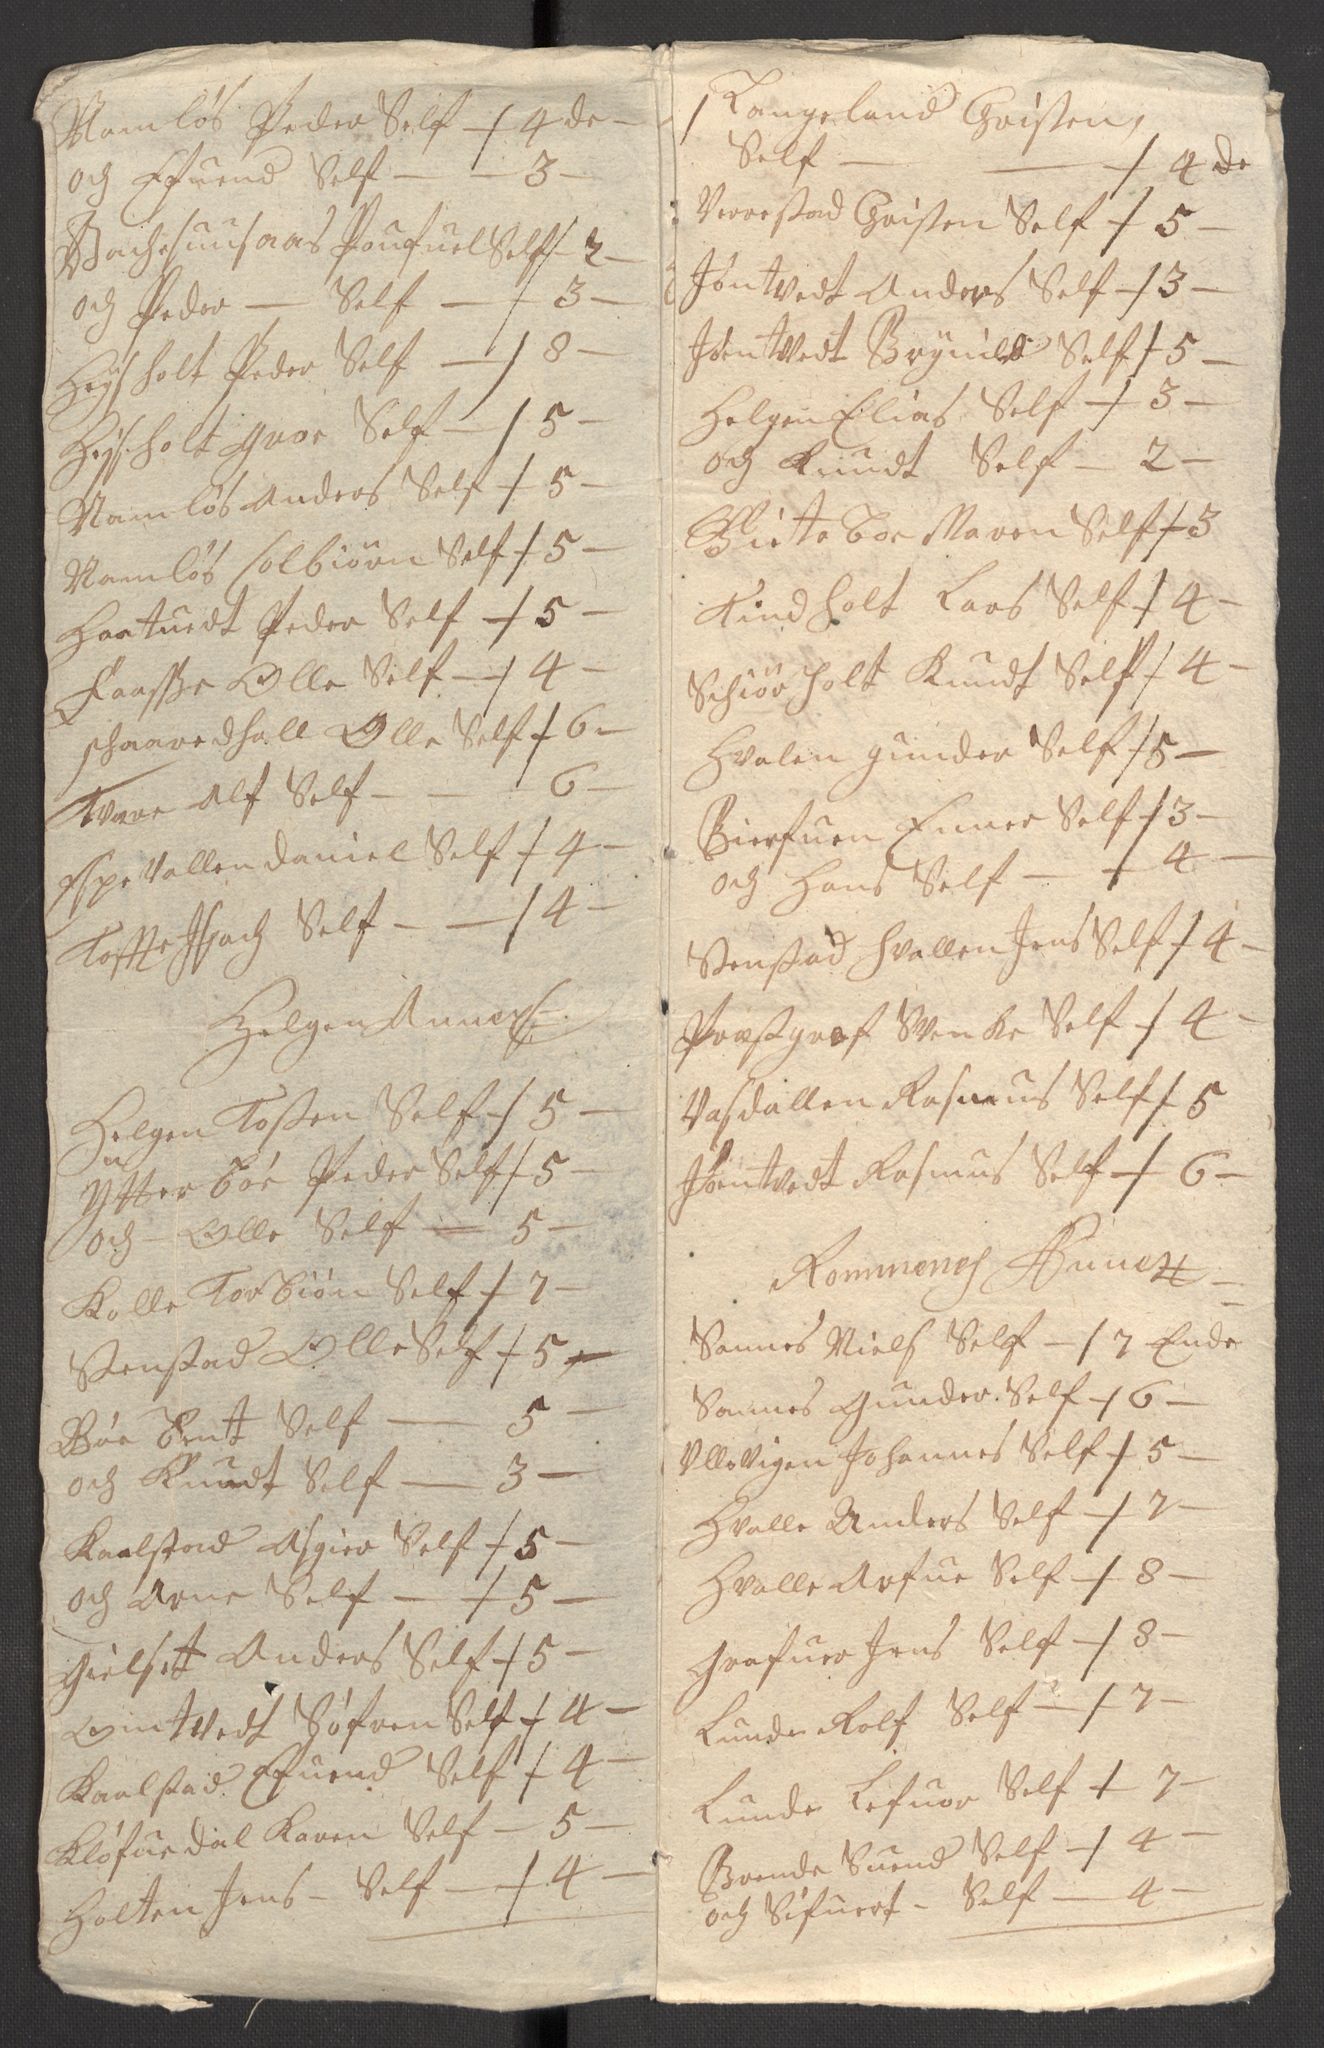 Namløs Peder Self - / 4 de -
och Efuend Self - - 3 -
Bachesuusaas Poufuel Self / 2 -
och Peder - Self - - 3 -
Heysholt Peder Self - / 8 -
Heysholt Groe Self - / 5 -
Namløs Anders Self - / 5 -
Namløs Colbiørn Self / 5 -
Haatuedt Peder Self - / 5 -
Faasße Olle Self - / 4 -
schaaredhall Olle Self / 6 -
Alf Self - - 6 -
EspeVallen Daniel Self / 4 -
Toffte Isach Self - - / 4 -
Helgen Annex
Helgen Tosten Self / 5 -
Ytterbøe Peder Self / 5 -
och - Olle Self - 5 -
Kolle Torbiøn Self / 7 -
Stenstad Olle Self / 5 -
Bøe Bent Self - 5 -
och Knudt Self - 3 -
Kaalstad Asgier Self / 5 -
och Arne Self - - / 5 -
Gielset Anders Self / 5 -
Omtvedt Søfren Self / 4 -
Kaalstad Efuend Self / 4 -
Kløfuedal Karen Self - 5 -
Holten Jens - Self - / 4 -
/ Langeland Christen,
Self - - / 4 de
Verestad Christen Self / 5 -
Jøntvedt Anders Self - / 3 -
Jøentvedt Brynild Self / 5 -
Helgen Elias Self - / 3 -
och Knudt Self - 2 -
Maren Self / 3
Tindholt Lars Self / 4 -
Schiørholt Knudt Self / 4 -
Hvalen Gunder Self / 5 -
Bierfuen Enner Self / 3 -
och Hans Self - - / 4 -
Stenstad hvallen Jens Self / 4 -
Præstgref Svenke Self / 4 -
Vasdallen Rasmus Self / 5
Jøentvedt Rasmus Self - / 6 -
Rommenes Annex
Sannes Niels Self - / 7 Ende
Sannes Gunder Self / 6 -
Ullevigen Johannes Self / 5 -
Hvalle Anders Self - / 7 -
Hvalle Arfue Self - / 8 -
Grafuer Jens Self - / 8 -
Lunde Rolf Self - / 7 -
Lunde Lefuor Self / 7 -
Brende Suend Self - / 4 -
och Sifuert - Self - 4 -